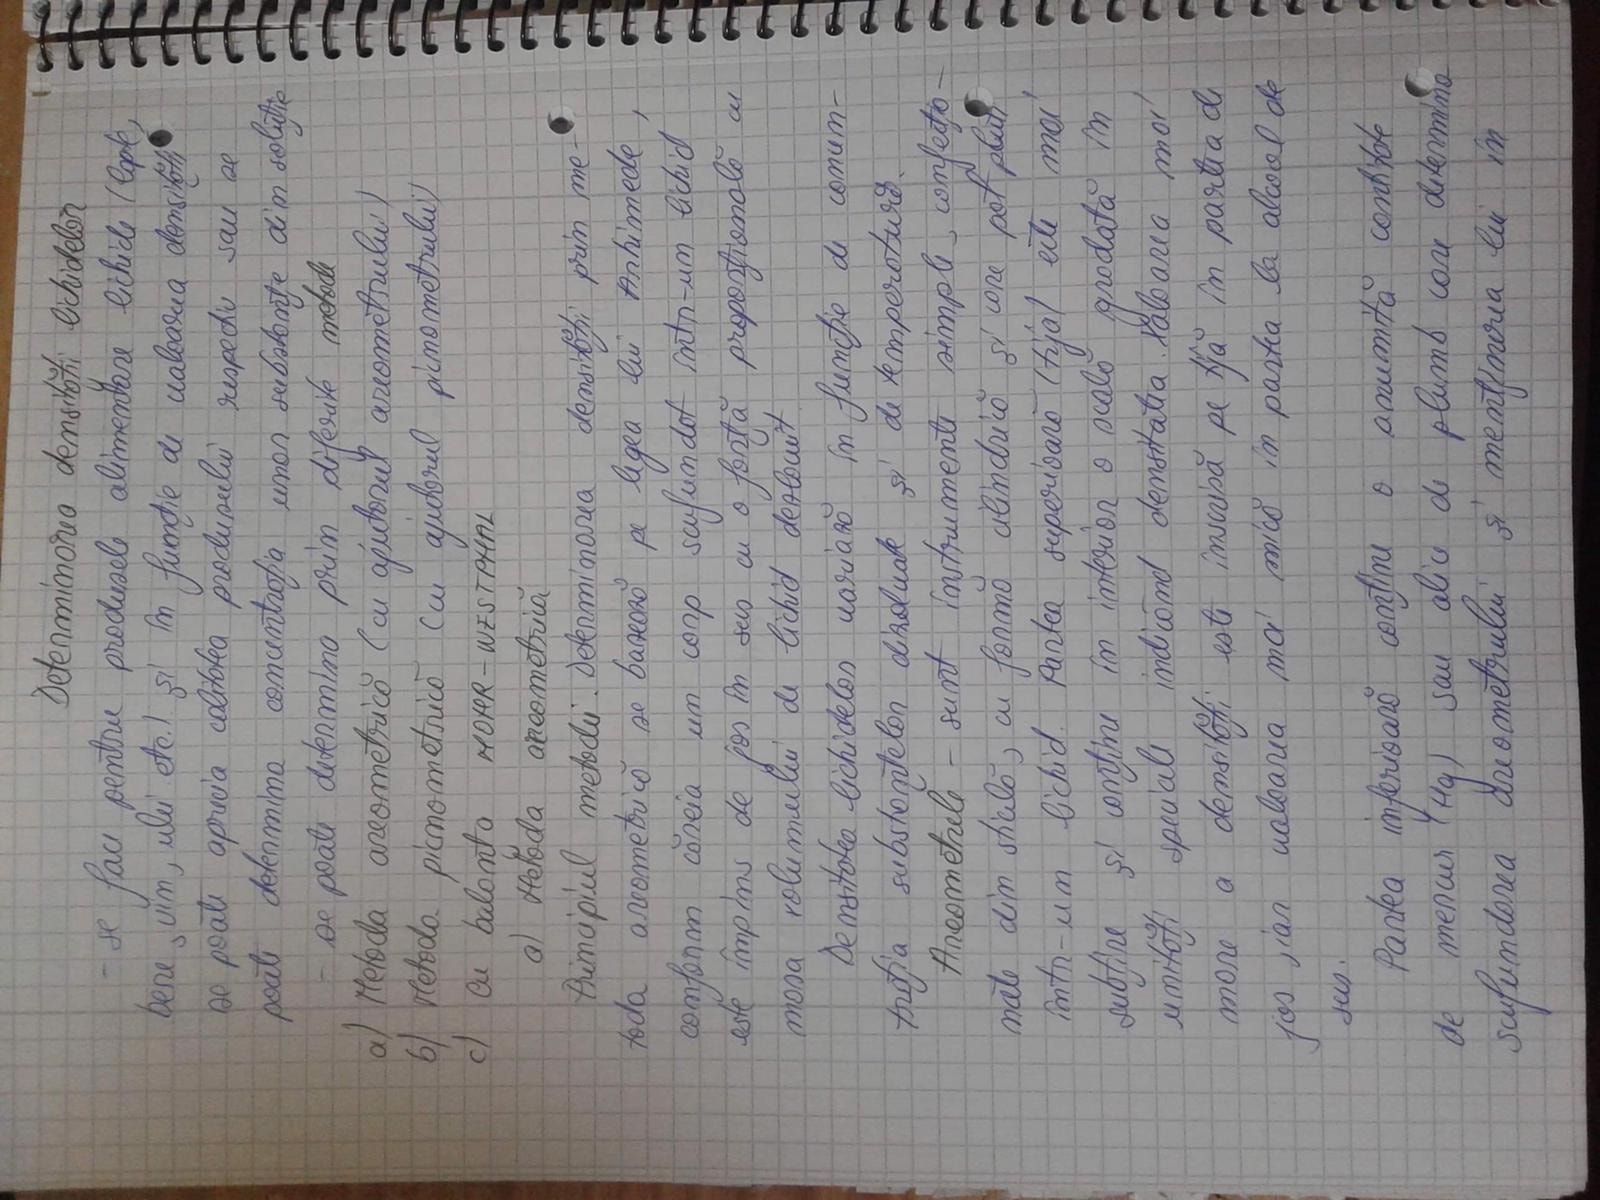 Determinarea densității lichidelor
- se face pentru produsele alimentare lichide (lapte,
bere, vin, ulei etc.) și în funcție de valoarea densității
se poate aprecia calitatea produsului respectiv sau se
poate determina concentrația unor substanțe din soluție
- se poate determina prin diferite metode
a) Metoda areometrică (cu ajutorul areometrului)
b) Metoda picnometrică (cu ajutorul picnometrului)
c) Cu balanta MOHR-WESTPHAL
a) Metoda areometrică
Principiul metodei. Determinarea densității prin me-
toda areometrică se bazează pe legea lui Arhimede,
conform căreia un corp scufundat într-un lichid
este împins de jos în sus cu o forță proporțională cu
masa volumului de lichid dezlocuit.
Densitatea lichidelor variază în funcție de concen-
trația substanțelor dizolvate și de temperatură.
Areometrele - sunt instrumente simple, confecțio-
nate din sticlă, cu formă cilindrică și care pot pluti
într-un lichid. Partea superioară (tija) este mai
subțire și conține în interior o scală gradată în
unități speciale indicând densitatea. Valoarea mai
mare a densității este înscrisă pe tijă în partea de
jos, iar valoarea mai mică în partea la alcool de
sus.
Partea inferioară conține o anumită cantitate
de mercur (Hg) sau alice de plumb care determină
scufundarea areometrului și menținerea lui în